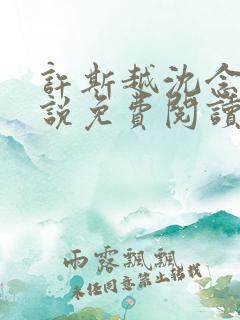 許斯越沈念
說免費閱讀
雨露飄飄
未經同意禁止轉載